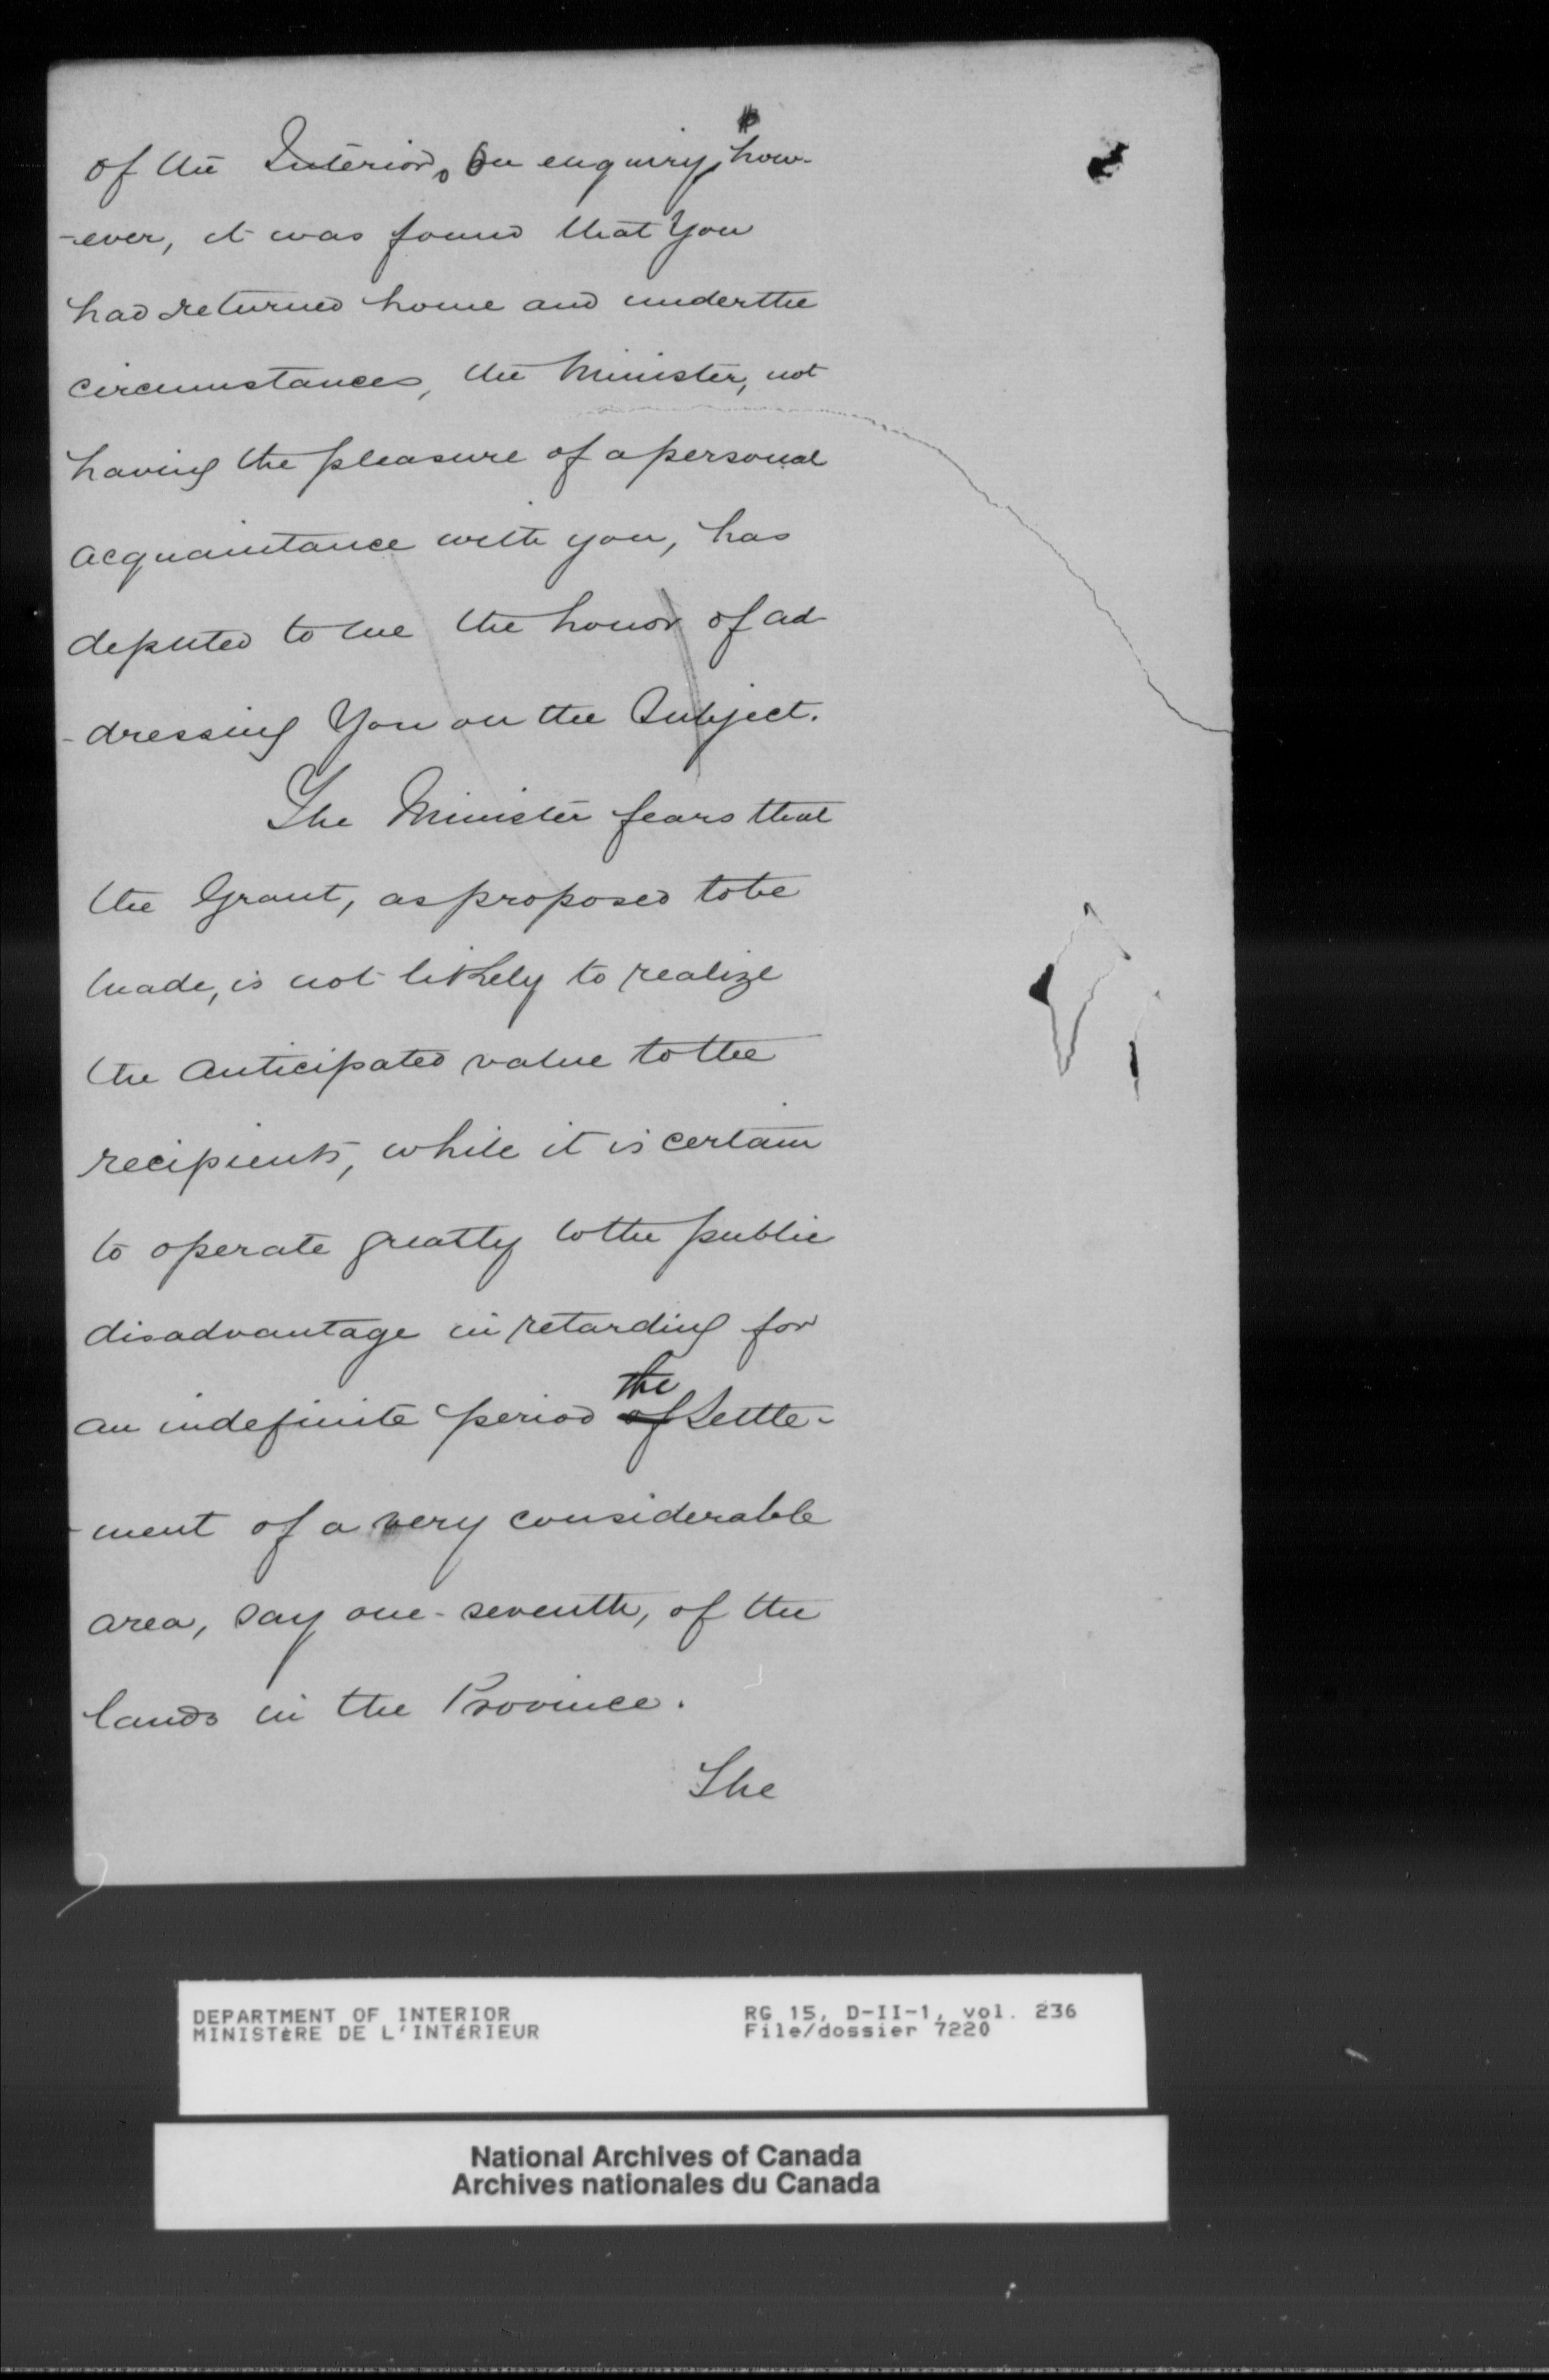 of the Interior. On enquiry, how-
-ever, it was found that You
had returned home and under the
circumstances, the Minister, not
having the pleasure of a personal
acquaintance with you, has
deputed to me the honor of ad-
-dressing You on the Subject.
The Minister fears that
the Grant, as proposed to be
made, is not likely to realize
the anticipated value to the
recipients, while it is certain
to operate greatly to the public
disadvantage in retarding for
the
an indefinite period of Settle-
-ment of a very considerable
area, say one-seventh, of the
lands in the Province.
The
DEPARTMENT OF INTERIOR
MINISTÈRE DE L'INTÉRIEUR
RG 15, D-II-1, vol. 236
File/dossier 7220
National Archives of Canada
Archives nationales du Canada